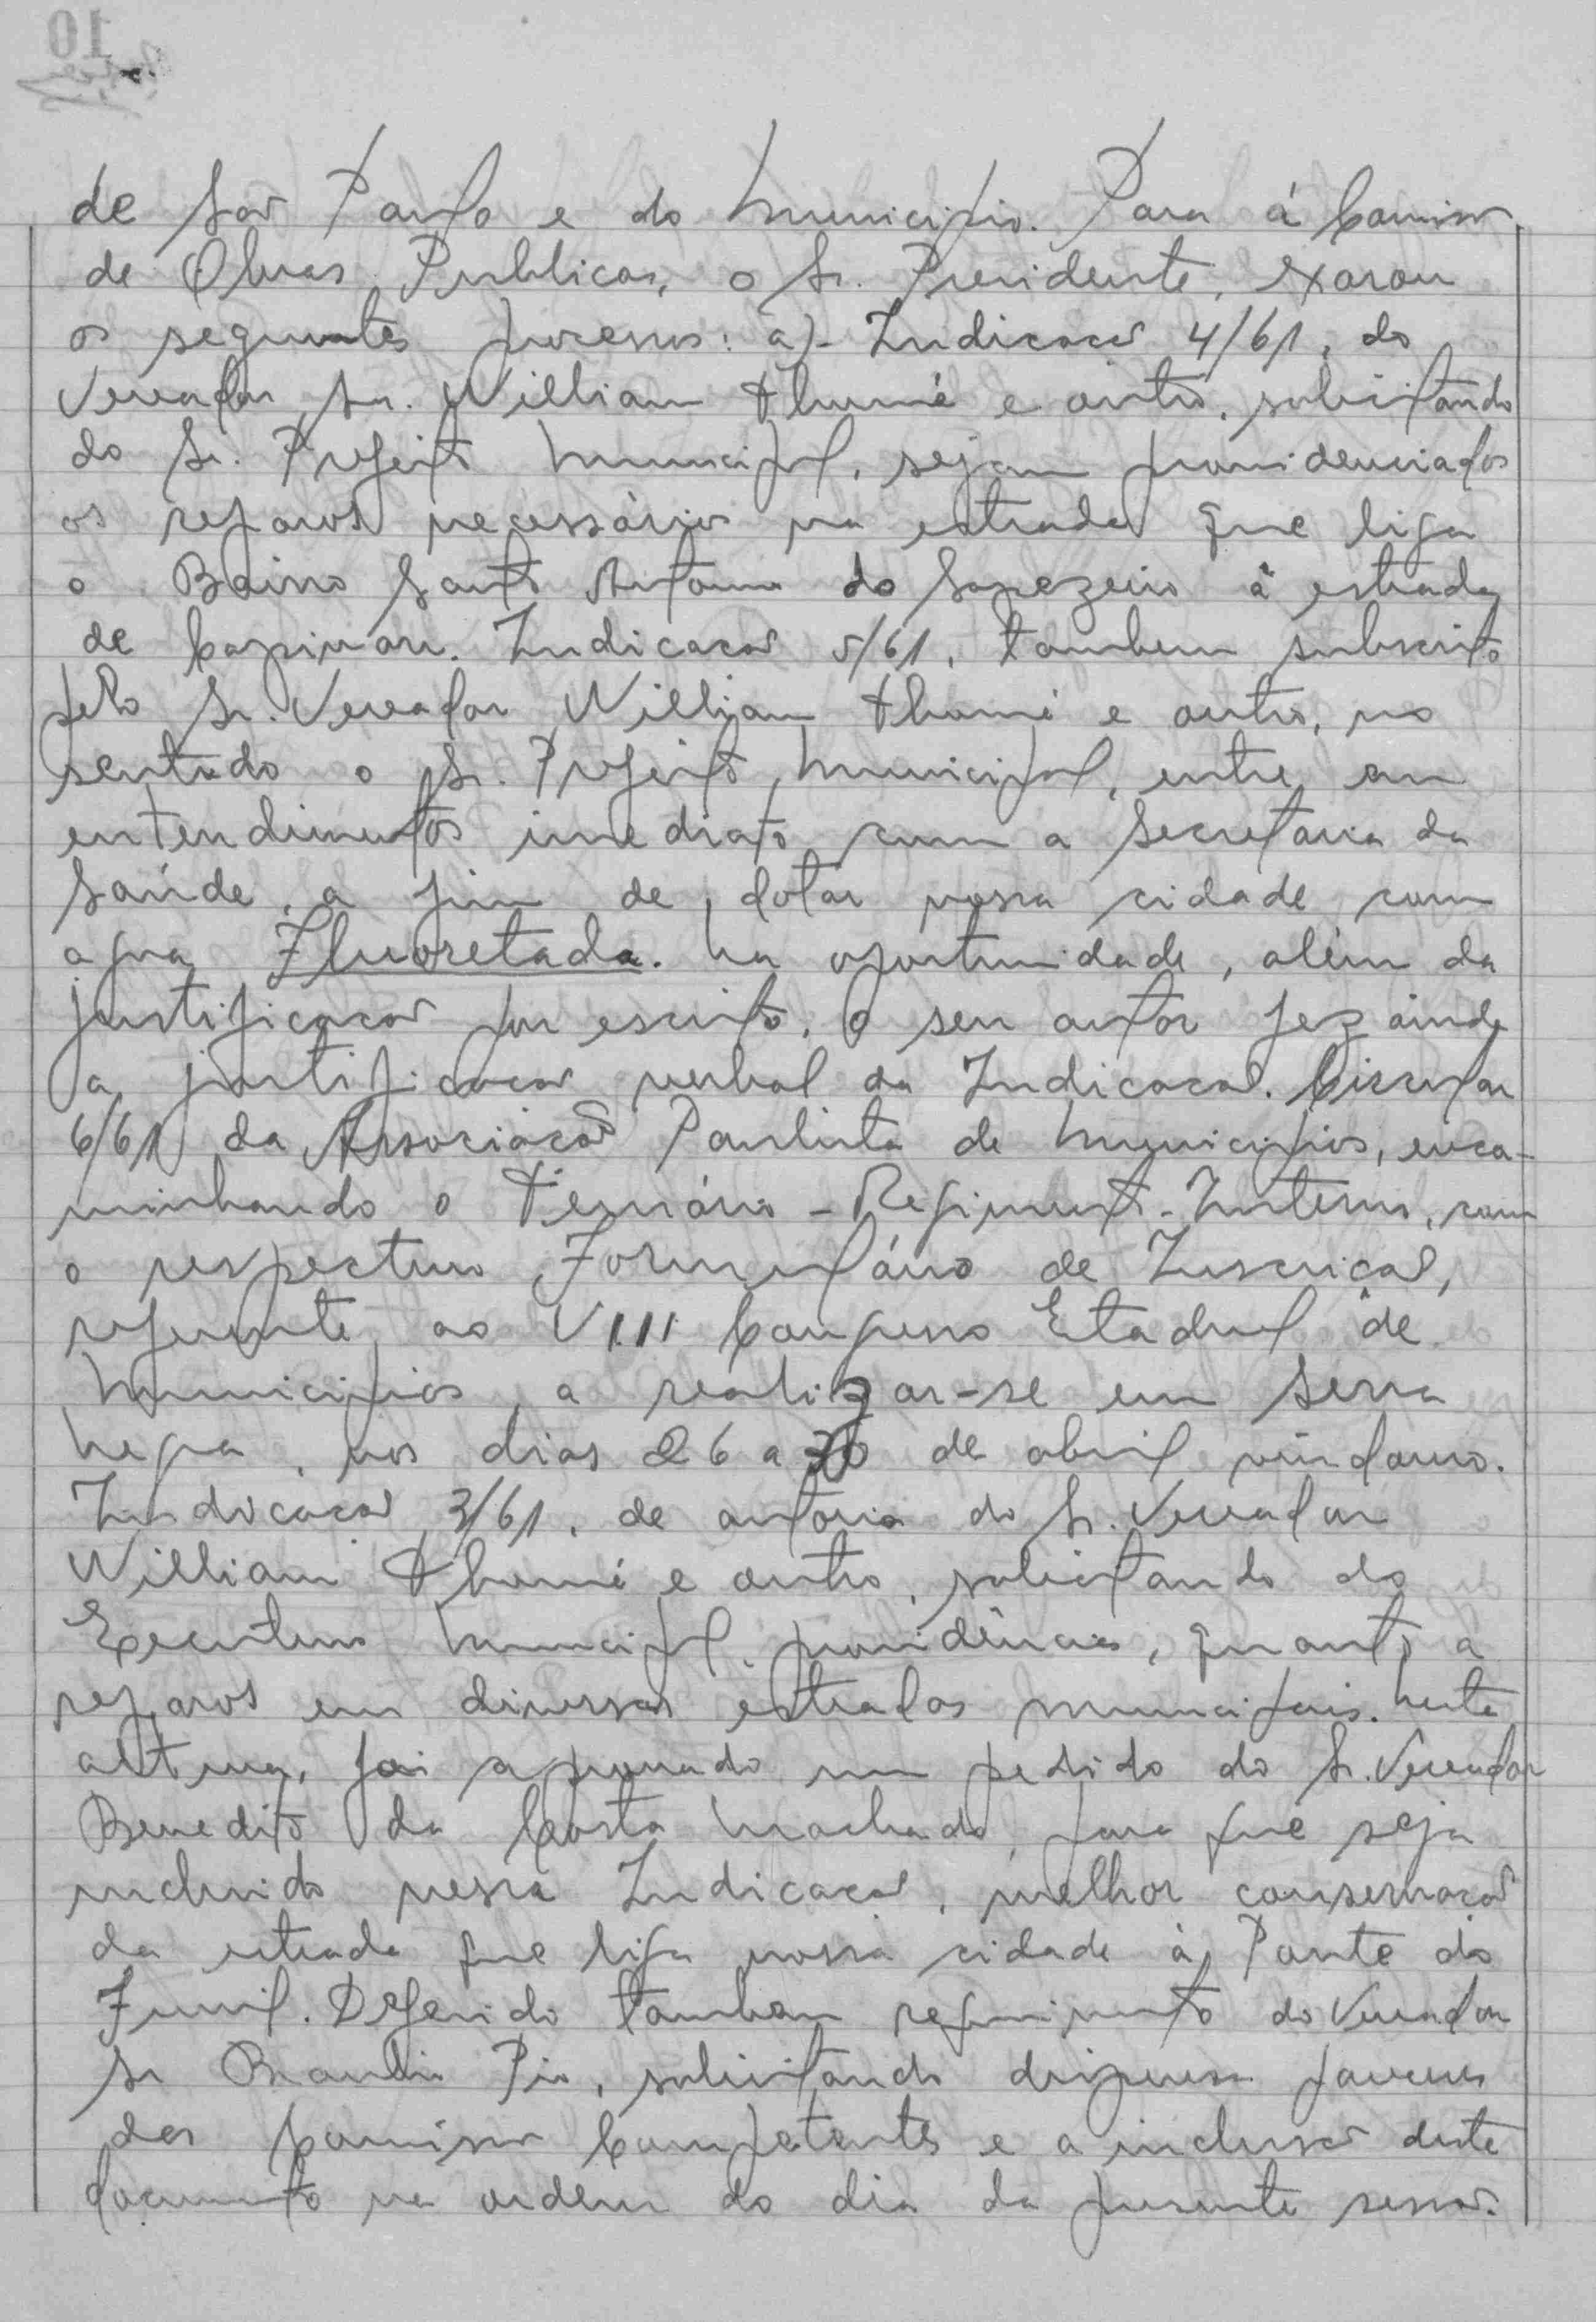 de São Paulo e do Municipio. Para á Comissão
de Obras Publicas, o Sr. Presidente, exarou
os seguintes processos: a)- Indicacão 4/61, do
Vereador Sr. William Thomé e outro, solicitando
do Sr. Prefeito Municipal, sejam providenciados
os reparos necessários na estrada que liga
o Bairro Santo Antonio do Sapezeiro á estrada
de Capivari. Indicacão 5/61, tambem subscrito
pelo Sr. Vereador William Thomé e outro, no
sentido o Sr. Prefeito Municipal, entre em
entendimentos imediato com a Secretaria da
Saúde, a fim de dotar nossa cidade com
agua Fluoretada. Na oportunidade, além da
justificacão por escrito, o seu autor fez ainda
a justificacão verbal da Indicacão. Circular
6/61 da Associacão Paulista de Municipios, enca-
minhando o Temário - Regimento - Interno, com
o respectivo Formulário de Inscricão,
referente ao VIII Congresso Estadual de
Municipios, a realizar-se em Serra
Negra, nos dias 26 a 30 de abril vindouro.
Indicacão 3/61, de autoria do Sr. Vereador
William Thomé e outro, solicitando do
Executivo Municipal, providências, quanto a
reparos em diversas estradas municipais. Nesta
altura, foi aprovado um pedido do Sr. Vereador
Benedito da Costa Machado, para que seja
incluido nessa Indicacão, melhor conservacão
da estrada que liga nossa cidade á Ponte do
Funil. Deferido tambem requerimento do Vereador
Sr Braulio Pio, solicitando dispensa pareceres
das Comissão Competentes e a inclusão deste
documento na ordem do dia da presente sessão.